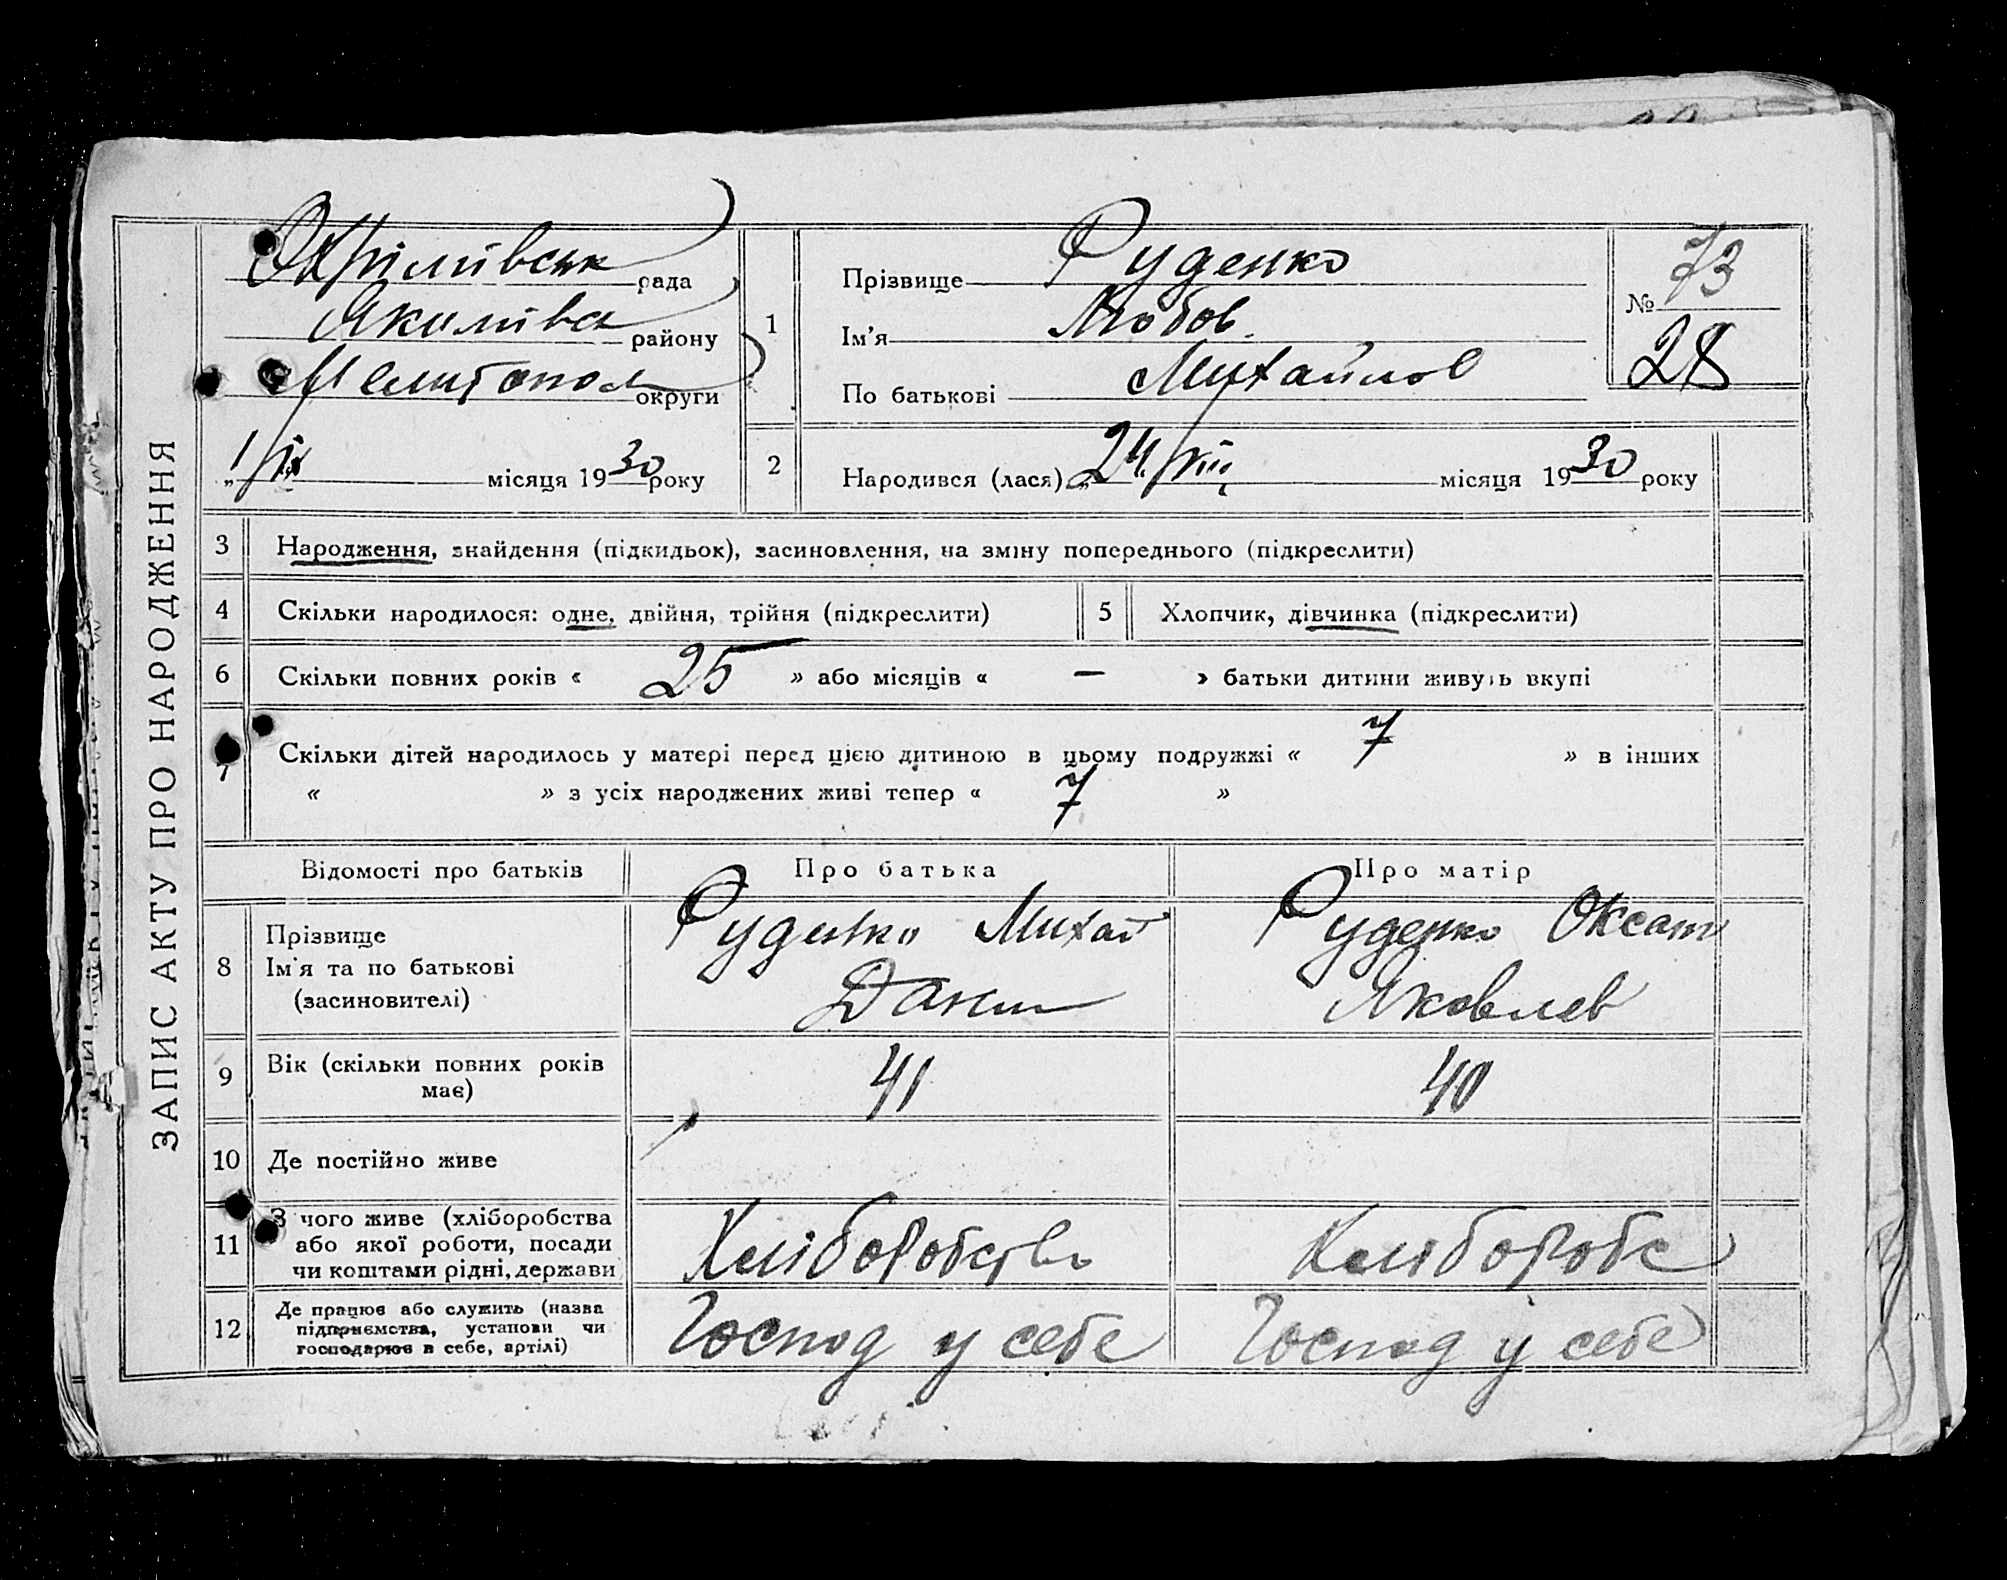 ЗАПИС АКТУ ПРО НАРОДЖЕННЯ
Охрімівськ рада
Якимівск району
Мелитопол округи
„1 “ ІХ місяця 1930 року
1
Прізвище Руденко
Ім'я Любов
По батькові Михайлов
№ 73
28
2
Народився (лася) „24“ VIII місяця 1930 року
3 Народження, знайдення (підкидьок), засиновлення, на зміну попереднього (підкреслити)
4 Скільки народилося: одне, двійня, трійня (підкреслити)
5 Хлопчик, дівчинка (підкреслити)
6 Скільки повних років « 25 » або місяців « — » батьки дитини живуть вкупі
7 Скільки дітей народилось у матері перед цією дитиною в цьому подружжі « 7 » в інших
« » з усіх народжених живі тепер « 7 »
Відомості про батьків Про батька Про матір
8 Прізвище
Ім'я та по батькові
(засиновителі)
Руденко Михай
Данил
Руденко Оксан
Яковлев
9 Вік (скільки повних років
має)
41 40
10 Де постійно живе
11 З чого живе (хліборобства
або якої роботи, посади
чи коштами рідні, держави
Хліборобство Хлібороб
12 Де працює або служить (назва
підприємства, установи чи
господарює в себе, артілі)
Господ у себе Господ у себе